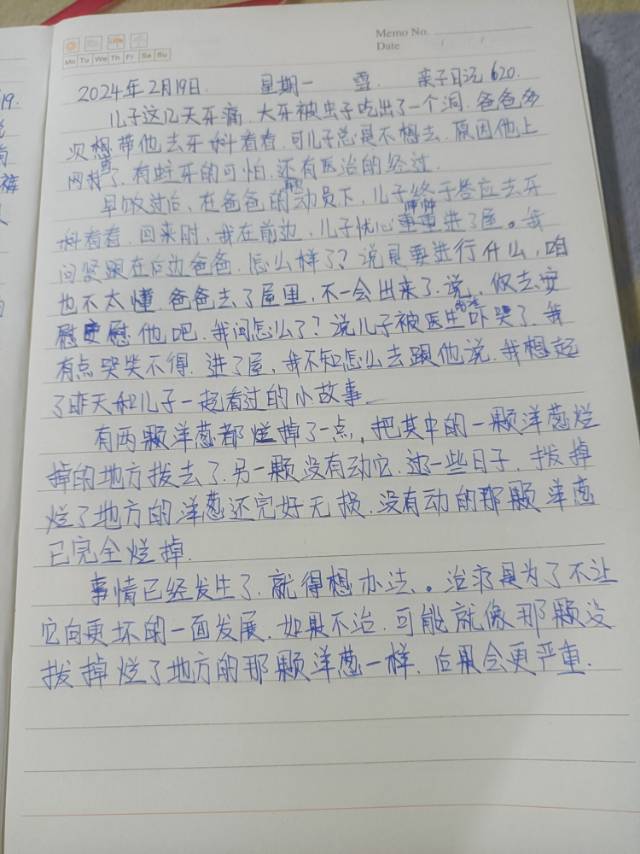 Memo No.
Date
Mo Tu We Th Fr Sa Su
2024年2月19日 星期一 雪 亲子日记620.
儿子这几天牙痛,大牙被虫子吃出了一个洞,爸爸多
次想带他去牙科看看,可儿子总是不想去,原因他上
网查了,有蛀牙的可怕,还有医治的经过.
早饭过后,在爸爸的动员下,儿子终于答应去牙
科看看,回来时,我在前边,儿子忧心忡忡进了屋。我
问紧跟在后边爸爸,怎么样了?说是要进行什么,咱
也不太懂,爸爸去了屋里,不一会出来了,说,你去安
慰慰他吧,我问怎么了?说儿子被医生吓哭了,我
有点哭笑不得,进了屋,我不知怎么去跟他说,我想起
了昨天和儿子一起看过的小故事.
有两颗洋葱都烂掉了一点,把其中的一颗洋葱烂
掉的地方拨去了,另一颗没有动它.过一些日子,拨掉
烂了地方的洋葱还完好无损,没有动的那颗洋葱
已完全烂掉.
事情已经发生了,就得想办法。治疗是为了不让
它向更坏的一面发展,如果不治,可能就像那颗没
拨掉烂了地方的那颗洋葱一样,后果会更严重.